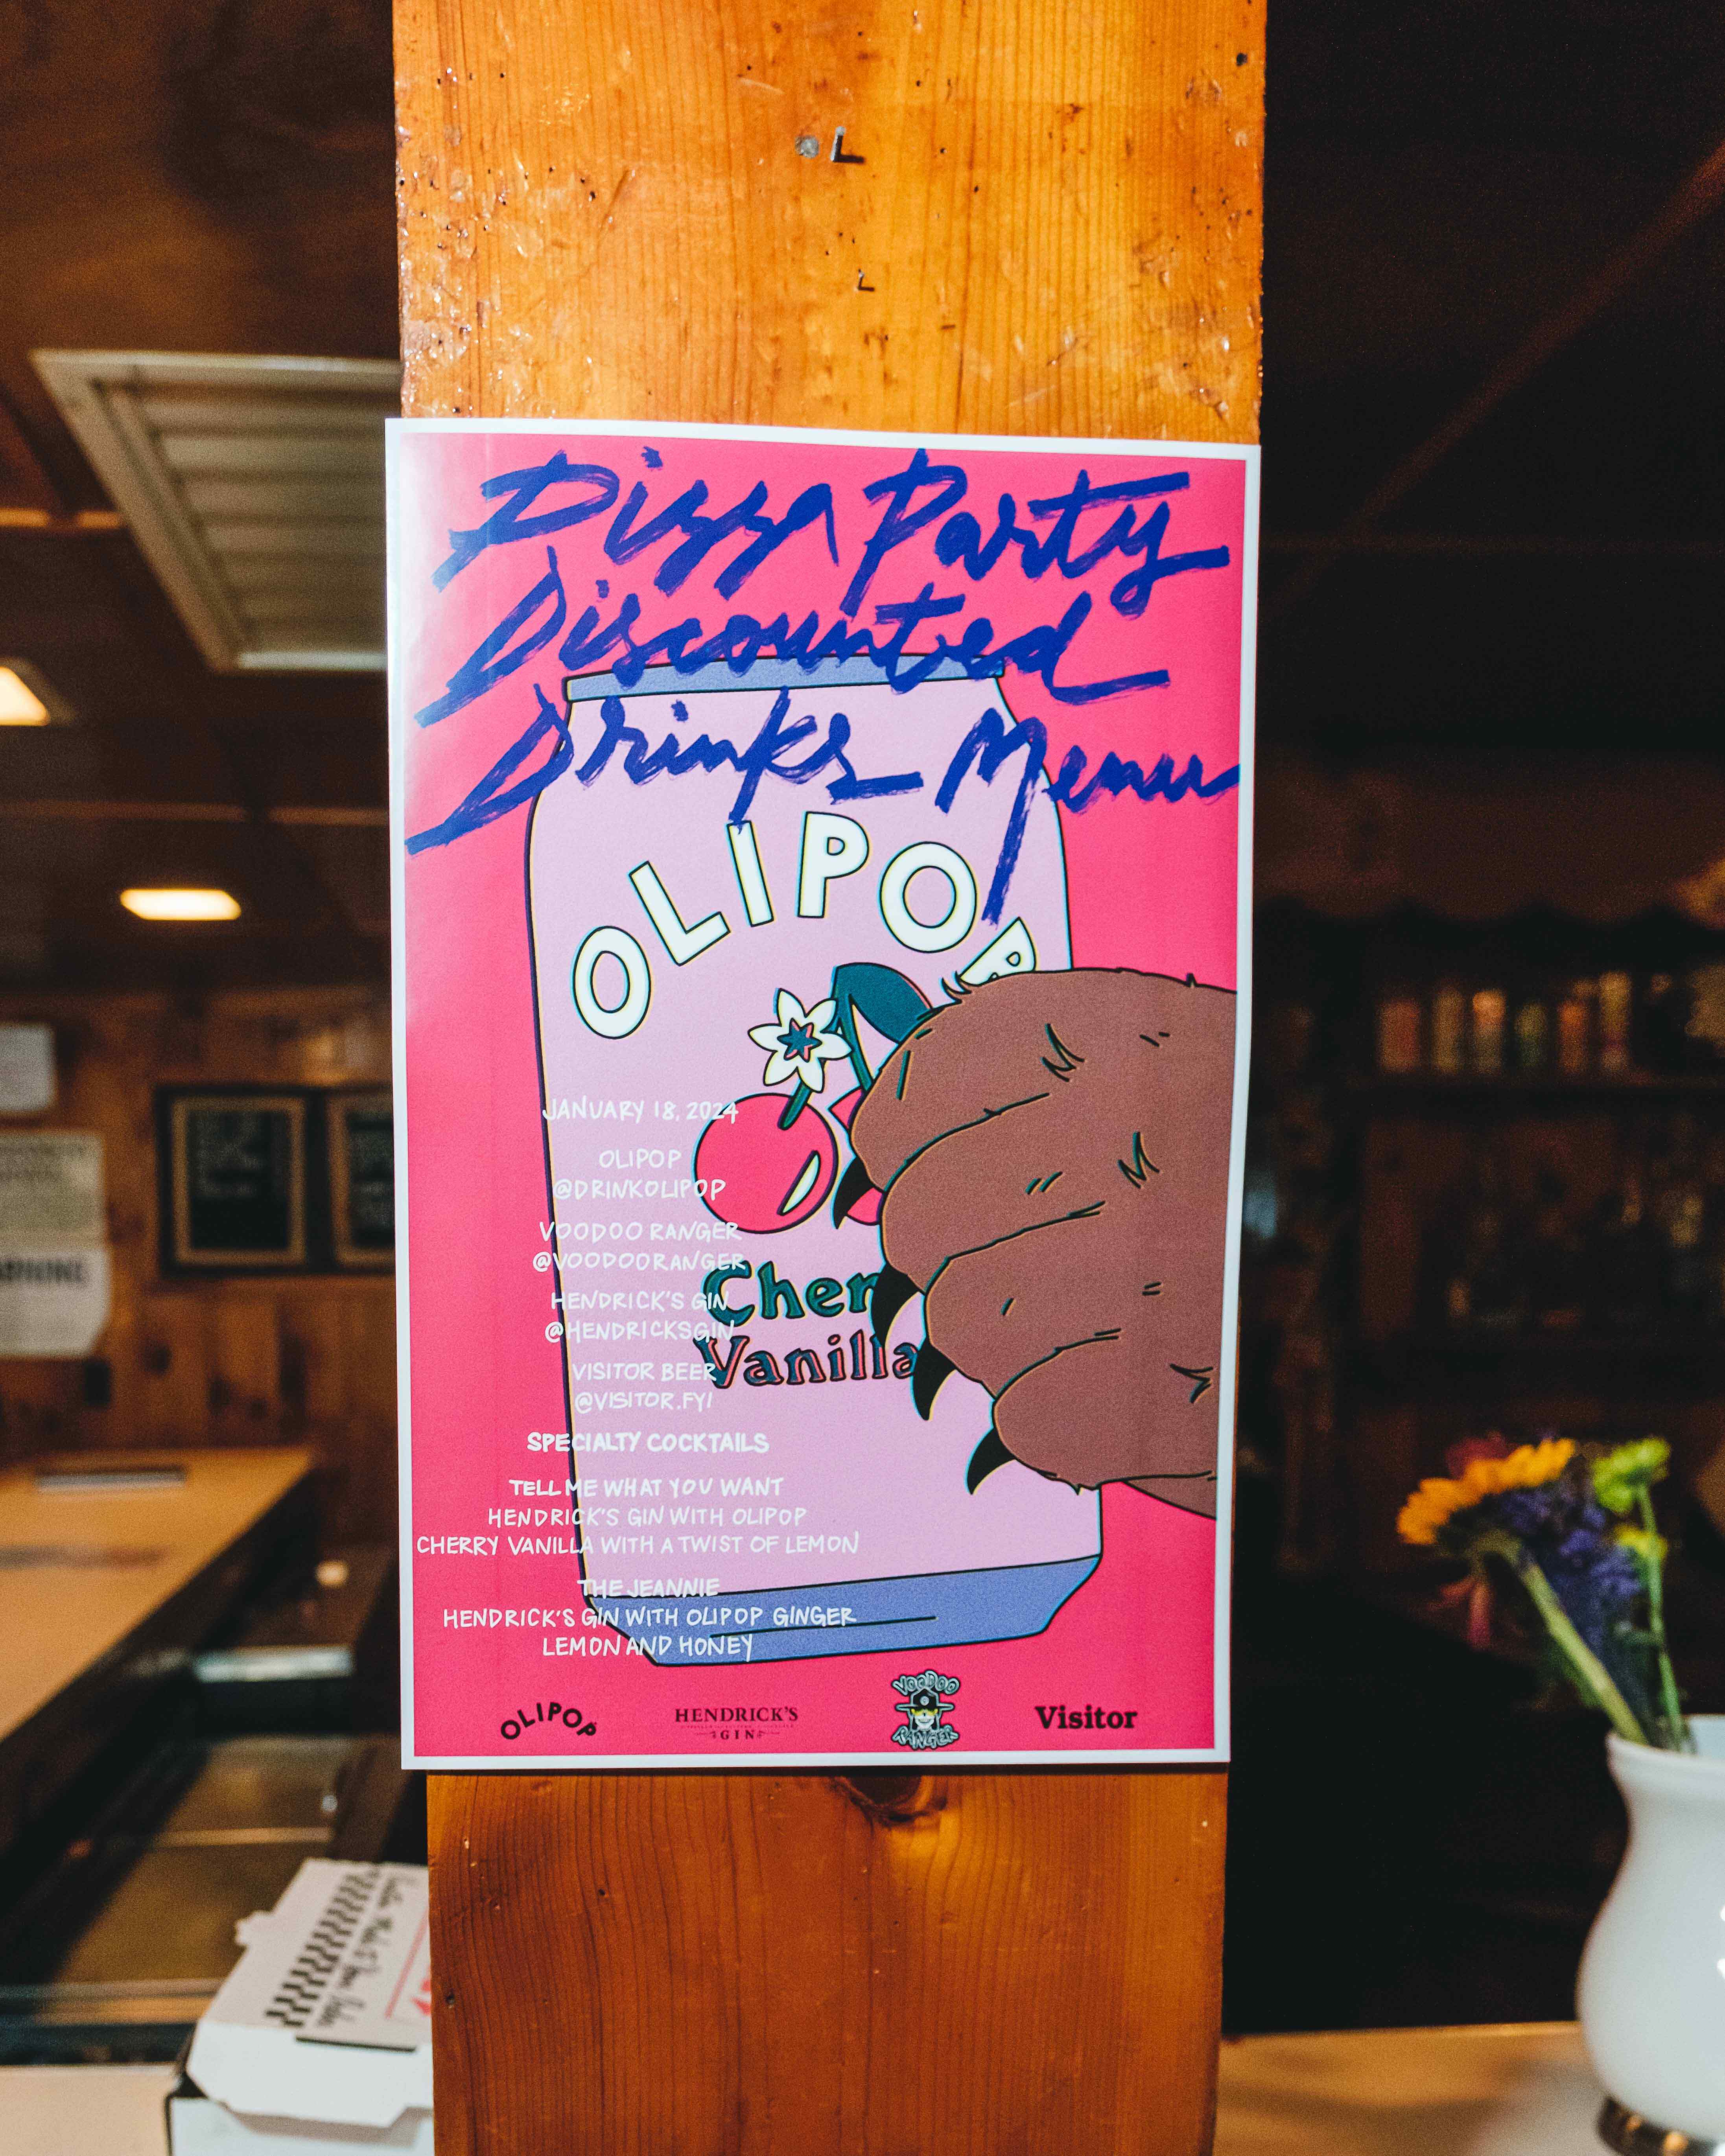 Pizza Party
Discounted
Drinks Menu
OLIPOP
JANUARY 18, 2024
OLIPOP
@DRINKOLIPOP
VOODOO RANGER
@VOODOORANGER
HENDRICK'S GIN
@HENDRICKSGIN
VISITOR BEER
@VISITOR.FYI
Cher
Vanilla
SPECIALTY COCKTAILS
TELL ME WHAT YOU WANT
HENDRICK'S GIN WITH OLIPOP
CHERRY VANILLA WITH A TWIST OF LEMON
THE JEANNIE
HENDRICK'S GIN WITH OLIPOP GINGER
LEMON AND HONEY
OLIPOP
HENDRICK'S
GIN
VOODOO
RANGER
Visitor